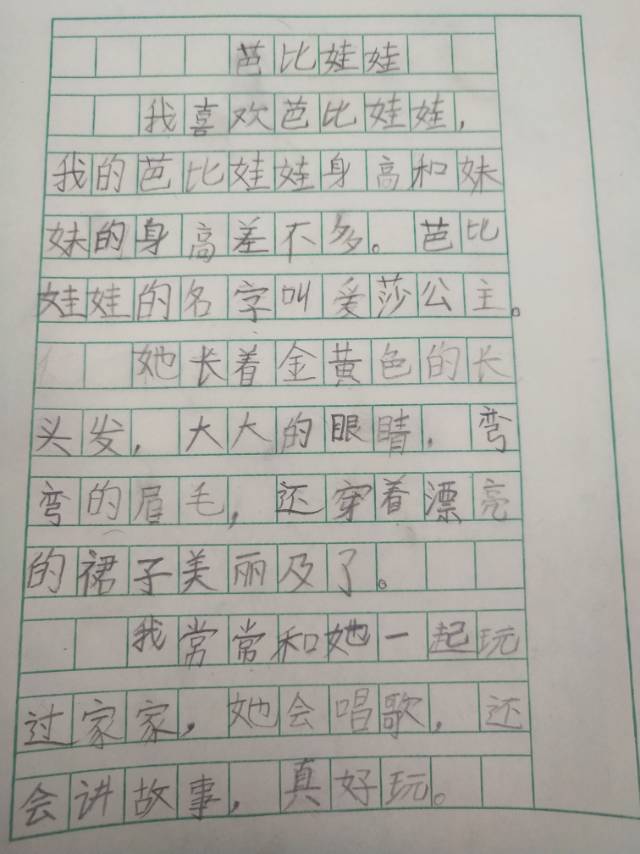 芭比娃娃
我喜欢芭比娃娃，
我的芭比娃娃身高和妹
妹的身高差不多。芭比
娃娃的名字叫爱莎公主。
她长着金黄色的长
头发，大大的眼睛，弯
弯的眉毛，还穿着漂亮
的裙子美丽及了。
我常常和她一起玩
过家家，她会唱歌，还
会讲故事，真好玩。